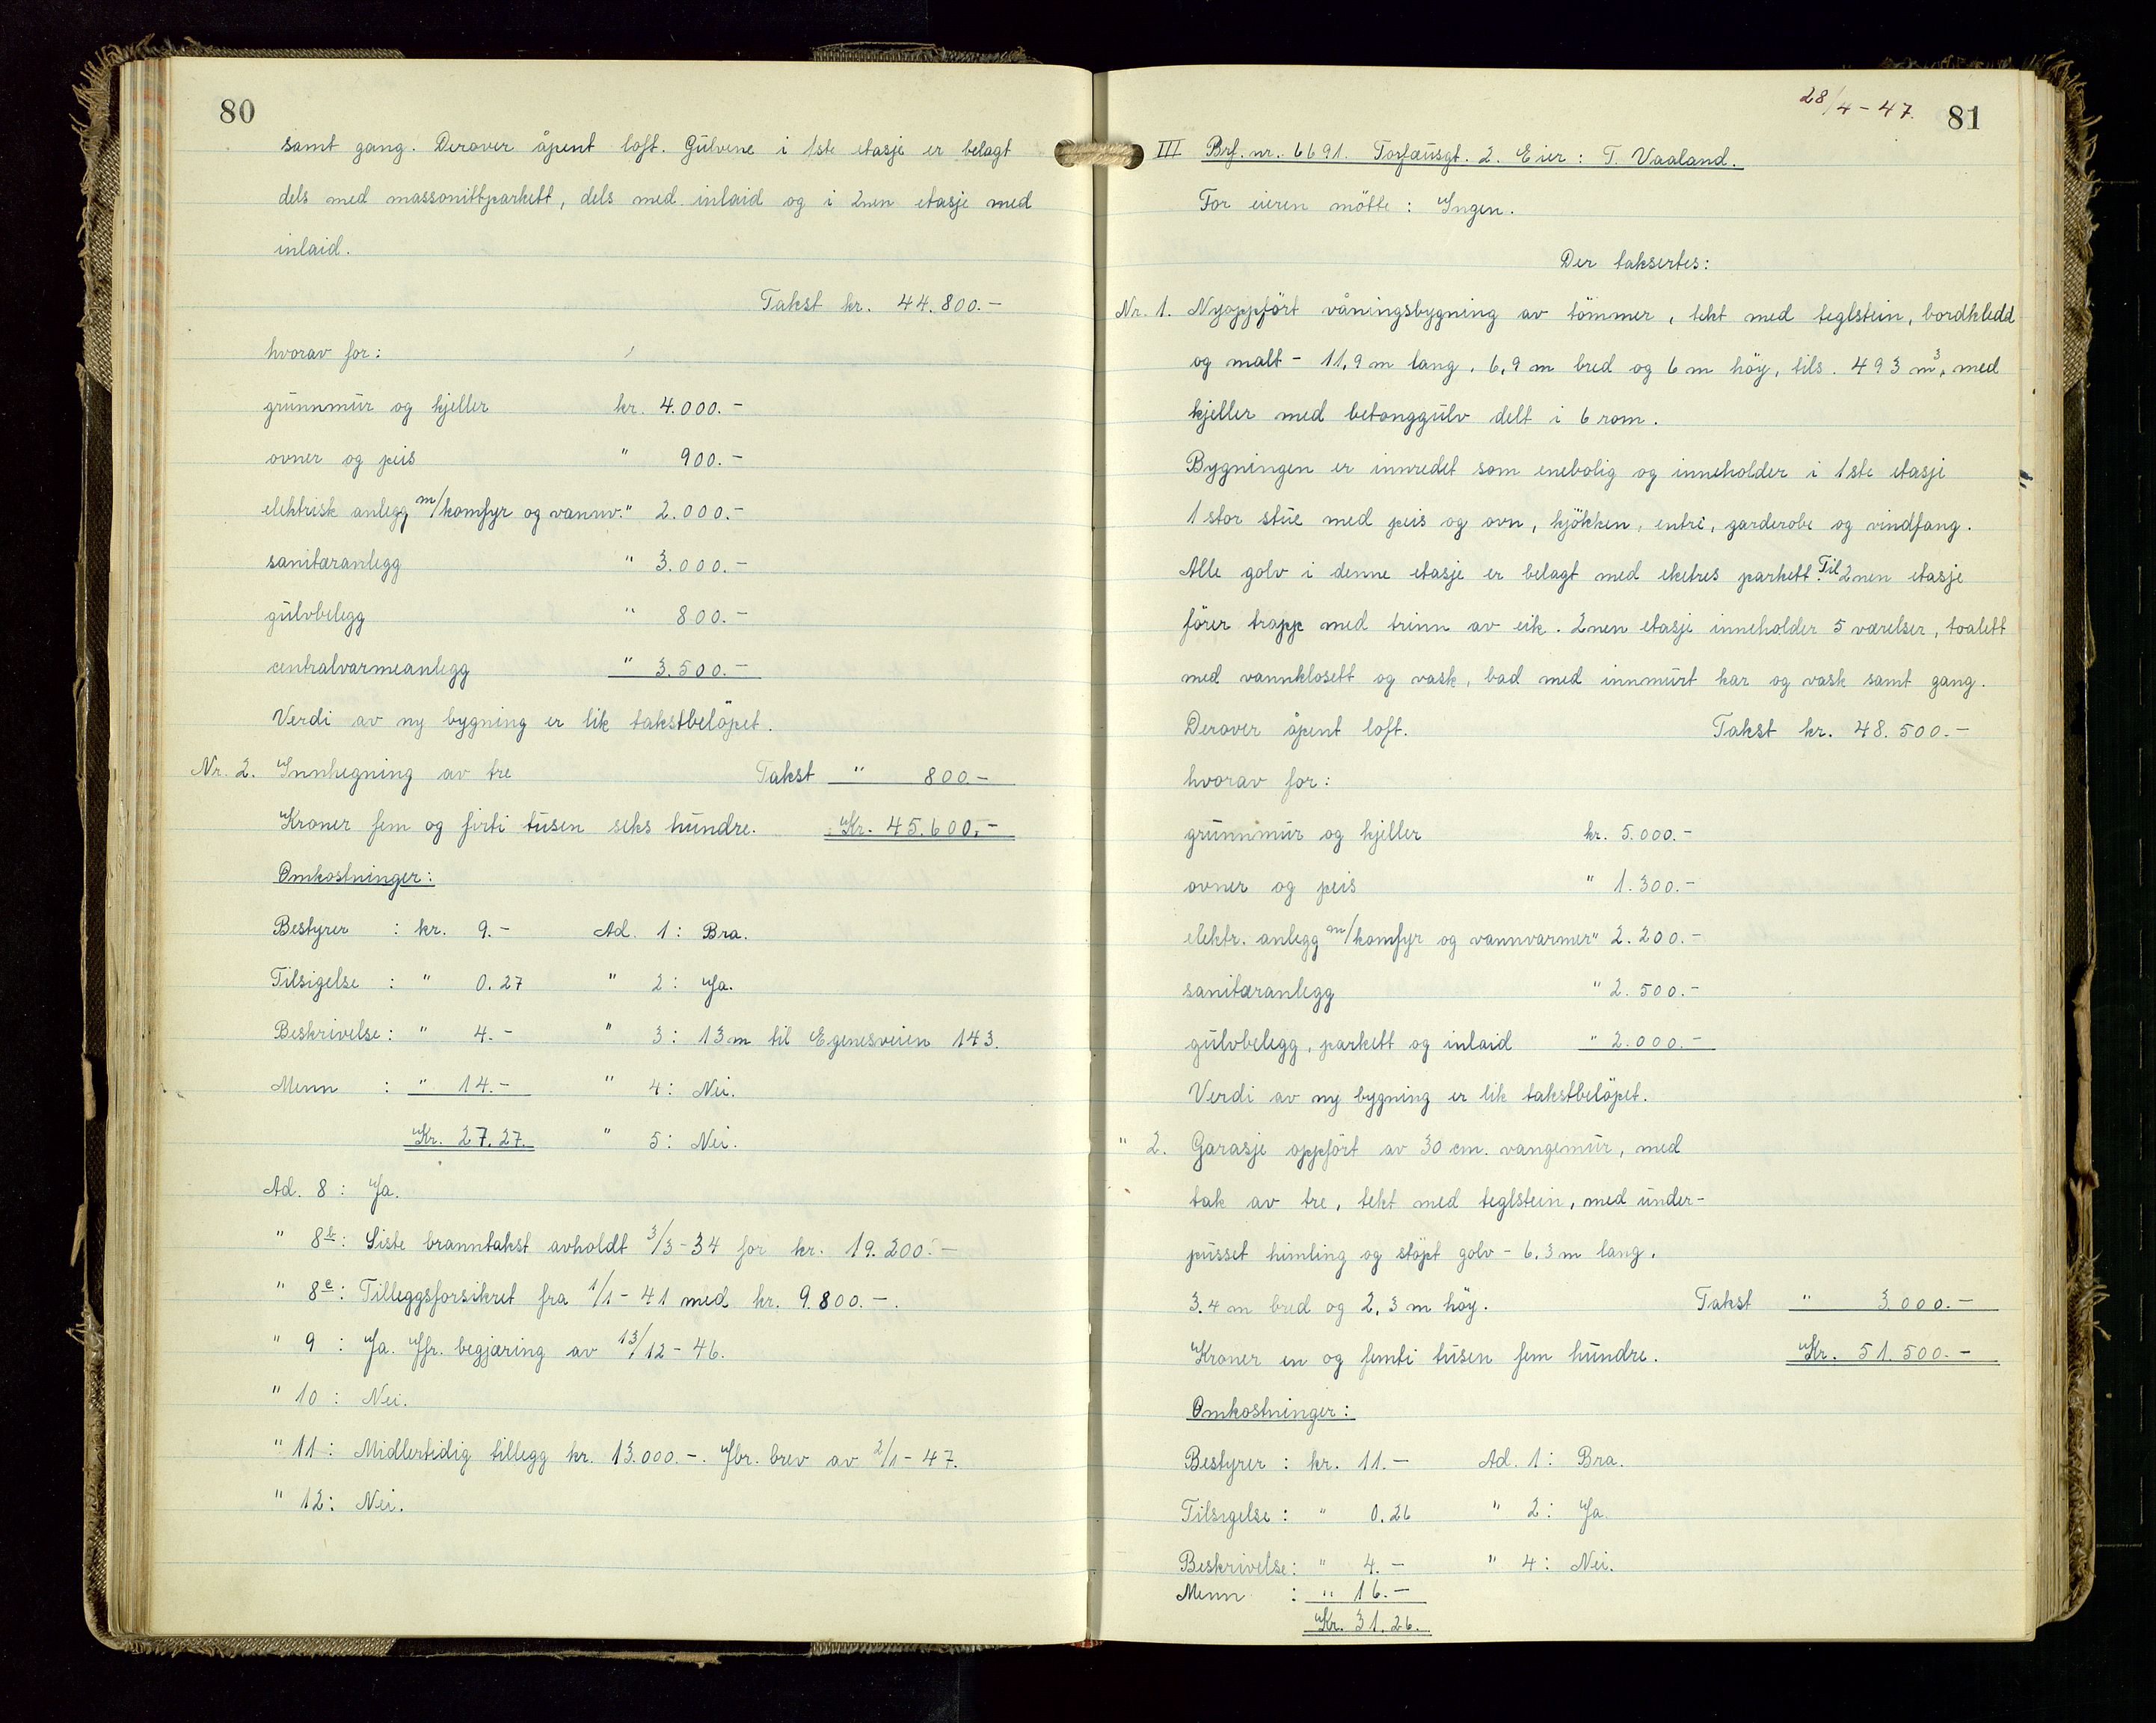 80
samt gang. Derover åpent loft. Gulvene i 1ste etasje er belagt
dels med massonittparkett, dels med inlaid og i 2nen etasje med
inlaid.
Takst kr. 44.800.-
hvorav for:
grunnmur og kjeller kr. 4.000.-
ovner og peis " 900.-
elektrisk anlegg m/komfyr og vannv. " 2.000.-
sanitæranlegg " 3.000.-
gulvbelegg " 800.-
centralvarmeanlegg " 3.500.-
Verdi av ny bygning er lik takstbeløpet.
Nr. 2. Innhegning av tre Takst " 800.-
Kroner fem og firti tusen seks hundre. Kr. 45.600.-
Omkostninger:
Bestyrer : kr. 9.- Ad. 1: Bra.
Tilsigelse : " 0.27 " 2: Ja.
Beskrivelse: " 4.- " 3: 13 m til Egenesveien 143.
Menn : " 14.- " 4: Nei.
Kr. 27.27. " 5: Nei.
Ad. 8: Ja.
" 8b: Siste branntakst avholdt 3/3-34 for kr. 19.200.-
" 8c: Tilleggsforsikret fra 1/1-41 med kr. 9.800.-.
" 9 : Ja. Jfr. begjæring av 13/12-46.
" 10 : Nei.
" 11: Midlertidig tillegg kr. 13.000.-. Jbr. brev av 2/1-47.
" 12: Nei.
28/4-47. 81
III Brf. nr. 6691. Torfæusgt. 2. Eier: T. Vaaland.
For eieren mötte: Ingen.
Der taksertes:
Nr. 1. Nyoppført våningsbygning av tömmer, tekt med teglstein, bordkledd
og malt - 11,9 m lang, 6,9 m bred og 6 m höy, tils. 493 m3, med
kjeller med betonggulv delt i 6 rom.
Bygningen er innredet som enebolig og inneholder i 1ste etasje
1 stor stue med peis og ovn, kjökken, entré, garderobe og vindfang.
Alle golv i denne etasje er belagt med eketres parkett. Til 2nen etasje
förer trapp med trinn av eik. 2nen etasje inneholder 5 værelser, toalett
med vannklosett og vask, bad med innmurt kar og vask samt gang.
Derover åpent loft. Takst kr. 48.500.-
hvorav for:
grunnmur og kjeller kr. 5.000.-
ovner og peis " 1.300.-
elektr. anlegg m/komfyr og vannvarmer " 2.200.-
sanitæranlegg " 2.500.-
gulvbelegg, parkett og inlaid " 2.000.-
Verdi av ny bygning er lik takstbelöpet.
" 2. Garasje oppfört av 30 cm. vangemur, med
tak av tre, tekt med teglstein, med under-
pusset himling og stöpt golv - 6,3 m lang,
3.4 m bred og 2,3 m höy. Takst " 3.000.-
Kroner en og femti tusen fem hundre. Kr. 51.500.-
Omkostninger:
Bestyrer : kr. 11.- Ad. 1: Bra.
Tilsigelse : " 0.26 " 2: Ja
Beskrivelse: " 4.- " 4: Nei.
Menn : " 16.-
Kr. 31.26.